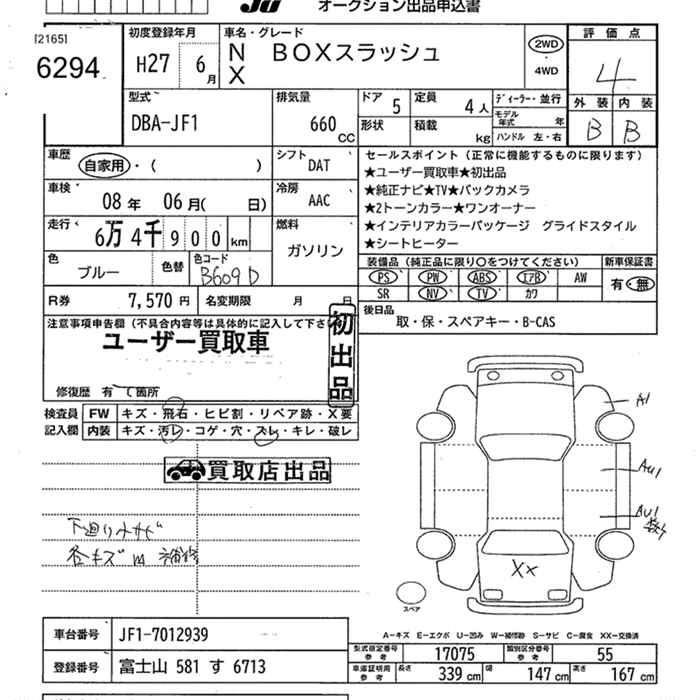 Ju オークション出品申込書
[2165]
6294
初度登録年月 H27 6月
車名・グレード N BOXスラッシュ
X
2WD ・ 4WD
評価点 4
外装 内装
B B
型式 DBA-JF1
排気量 660 CC
ドア 5 定員 4人
形状 積載 kg
ディーラー・並行
モデル年式 年
ハンドル 左・右
車歴 自家用・( )
シフト DAT
車検 08年 06月( 日)
冷房 AAC
走行 6万4千900km
燃料 ガソリン
色 ブルー 色替 色コード B609D
R券 7,570円 名変期限 月 日
セールスポイント(正常に機能するものに限ります)
★ユーザー買取車★初出品
★純正ナビ★TV★バックカメラ
★2トーンカラー★ワンオーナー
★インテリアカラーパッケージ グライドスタイル
★シートヒーター
装備品(純正品に限り○をつけてください) 新車保証書
PS PW ABS エアB AW 有・無
SR NV TV カワ
後日品
取・保・スペアキー・B-CAS
注意事項申告欄(不具合内容等は具体的に記入して下さい
ユーザー買取車
初出品
修復歴 有 て箇所
検査員記入欄
FW キズ・飛石・ヒビ割・リペア跡・X要
内装 キズ・汚レ・コゲ・穴・スレ・キレ・破レ
買取店出品
下廻り小サビ
各キズ
A1
AU1
AU1
XX
スペア
A-キズ E-エクボ U-凹み W-補修跡 S-サビ C-腐食 XX-交換済
車台番号 JF1-7012939
登録番号 富士山 581 す 6713
型式指定番号 参考 17075 類別区分番号 参考 55
車庫証明用 参考 長さ 339cm 幅 147cm 高さ 167cm